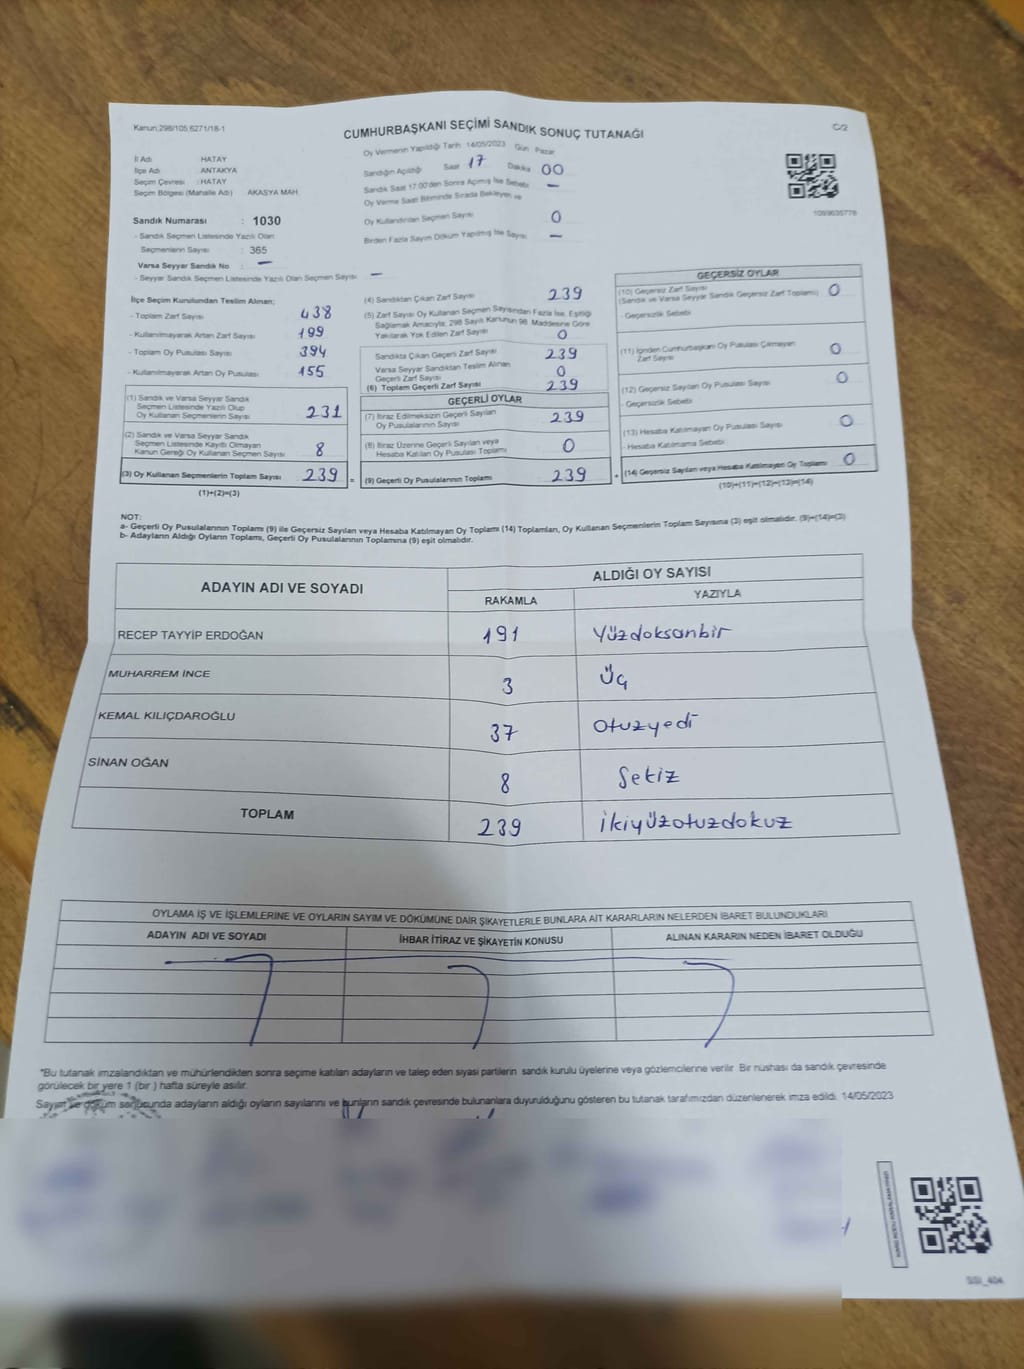 Kanun:298/105,6271/18-1
CUMHURBAŞKANI SEÇİMİ SANDIK SONUÇ TUTANAĞI
C/2
İl Adı : HATAY
İlçe Adı : ANTAKYA
Seçim Çevresi : HATAY
Seçim Bölgesi (Mahalle Adı) : AKASYA MAH.
Sandık Numarası : 1030
- Sandık Seçmen Listesinde Yazılı Olan
Seçmenlerin Sayısı : 365
Varsa Seyyar Sandık No : —
- Seyyar Sandık Seçmen Listesinde Yazılı Olan Seçmen Sayısı —
Oy Vermenin Yapıldığı Tarih 14/05/2023 Gün Pazar
Sandığın Açıldığı Saat 17 Dakika 00
Sandık Saat 17:00'den Sonra Açılmış İse Sebebi —
Oy Verme Saati Bitiminde Sırada Bekleyen ve
Oy Kullandırılan Seçmen Sayısı 0
Birden Fazla Sayım Döküm Yapılmış İse Sayısı —
1099635778
İlçe Seçim Kurulundan Teslim Alınan;
- Toplam Zarf Sayısı 438
- Kullanılmayarak Artan Zarf Sayısı 199
- Toplam Oy Pusulası Sayısı 394
- Kullanılmayarak Artan Oy Pusulası 155
(1) Sandık ve Varsa Seyyar Sandık
Seçmen Listesinde Yazılı Olup
Oy Kullanan Seçmenlerin Sayısı 231
(2) Sandık ve Varsa Seyyar Sandık
Seçmen Listesinde Kayıtlı Olmayan
Kanun Gereği Oy Kullanan Seçmen Sayısı 8
(3) Oy Kullanan Seçmenlerin Toplam Sayısı 239 =
(1)+(2)=(3)
(4) Sandıktan Çıkan Zarf Sayısı 239
(5) Zarf Sayısı Oy Kullanan Seçmen Sayısından Fazla İse, Eşitliği
Sağlamak Amacıyla; 298 Sayılı Kanunun 98. Maddesine Göre
Yakılarak Yok Edilen Zarf Sayısı 0
Sandıkta Çıkan Geçerli Zarf Sayısı 239
Varsa Seyyar Sandıktan Teslim Alınan
Geçerli Zarf Sayısı 0
(6) Toplam Geçerli Zarf Sayısı 239
GEÇERLİ OYLAR
(7) İtiraz Edilmeksizin Geçerli Sayılan
Oy Pusulalarının Sayısı 239
(8) İtiraz Üzerine Geçerli Sayılan veya
Hesaba Katılan Oy Pusulası Toplamı 0
(9) Geçerli Oy Pusulalarının Toplamı 239 +
GEÇERSİZ OYLAR
(10) Geçersiz Zarf Sayısı 0
(Sandık ve Varsa Seyyar Sandık Geçersiz Zarf Toplamı)
- Geçersizlik Sebebi
(11) İçinden Cumhurbaşkanı Oy Pusulası Çıkmayan
Zarf Sayısı 0
(12) Geçersiz Sayılan Oy Pusulası Sayısı 0
- Geçersizlik Sebebi
(13) Hesaba Katılmayan Oy Pusulası Sayısı 0
- Hesaba Katılmama Sebebi
(14) Geçersiz Sayılan veya Hesaba Katılmayan Oy Toplamı 0
(10)+(11)+(12)+(13)=(14)
NOT:
a- Geçerli Oy Pusulalarının Toplamı (9) ile Geçersiz Sayılan veya Hesaba Katılmayan Oy Toplamı (14) Toplamları, Oy Kullanan Seçmenlerin Toplam Sayısına (3) eşit olmalıdır. (9)+(14)=(3)
b- Adayların Aldığı Oyların Toplamı, Geçerli Oy Pusulalarının Toplamına (9) eşit olmalıdır.
ADAYIN ADI VE SOYADI
ALDIĞI OY SAYISI
RAKAMLA YAZIYLA
RECEP TAYYİP ERDOĞAN 191 Yüzdoksanbir
MUHARREM İNCE 3 Üç
KEMAL KILIÇDAROĞLU 37 Otuzyedi
SİNAN OĞAN 8 Sekiz
TOPLAM 239 İkiyüzotuzdokuz
OYLAMA İŞ VE İŞLEMLERİNE VE OYLARIN SAYIM VE DÖKÜMÜNE DAİR ŞİKAYETLERLE BUNLARA AİT KARARLARIN NELERDEN İBARET BULUNDUKLARI
ADAYIN ADI VE SOYADI İHBAR İTİRAZ VE ŞİKAYETİN KONUSU ALINAN KARARIN NEDEN İBARET OLDUĞU
*Bu tutanak imzalandıktan ve mühürlendikten sonra seçime katılan adayların ve talep eden siyasi partilerin sandık kurulu üyelerine veya gözlemcilerine verilir. Bir nüshası da sandık çevresinde
görülecek bir yere 1 (bir) hafta süreyle asılır.
Sayım ve döküm sonucunda adayların aldığı oyların sayılarını ve bunların sandık çevresinde bulunanlara duyurulduğunu gösteren bu tutanak tarafımızdan düzenlenerek imza edildi. 14/05/2023